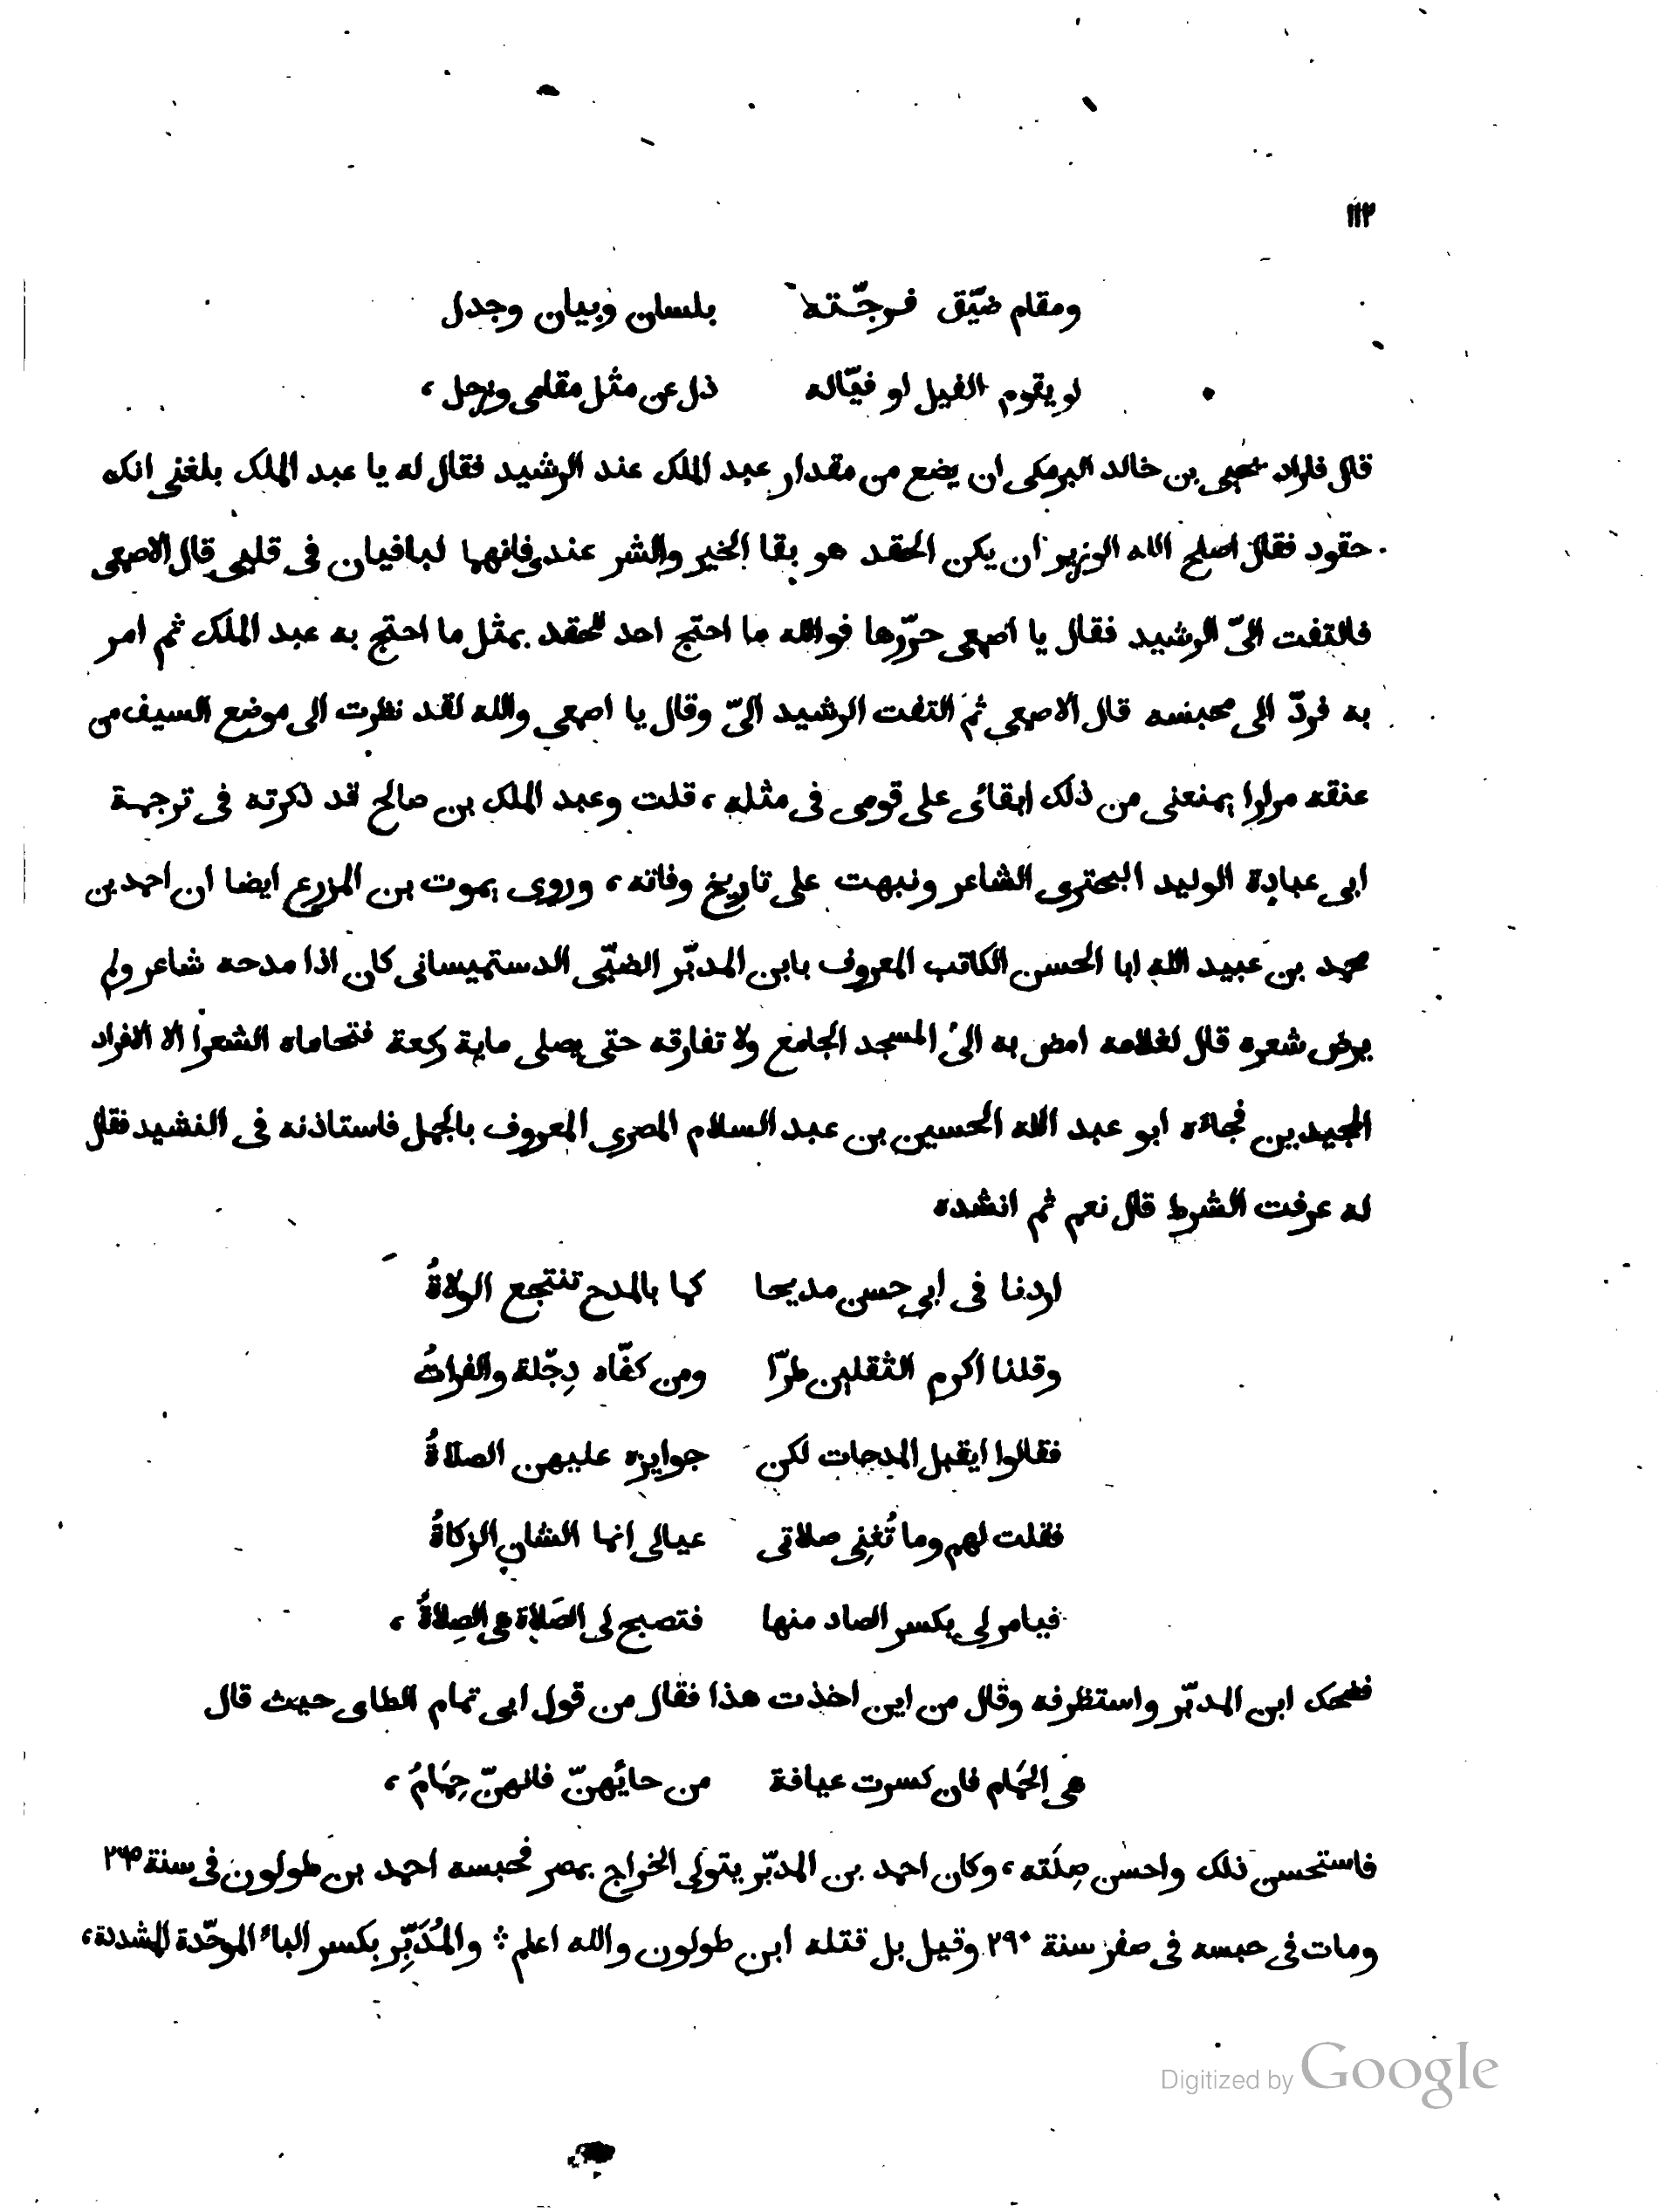 ١١٢
ومقام ضيّق فرجّته بلسان وبيان وجدل
لو يقوم الفيل او فيّاله ذل عن مثل مقامى وزحل ،
قال فاراد يحيى بن خالد البرمكى ان يضع من مقدار عبد الملك عند الرشيد فقال له يا عبد الملك بلغنى انك
حقود فقال اصلح الله الوزير ان يكن الحقد هو بقا الخير والشر عندى فانهما لباقيان فى قلبى قال الاصمعى
فالتفت الىّ الرشيد فقال يا اصمعى حرّرها فوالله ما احتج احد للحقد بمثل ما احتج به عبد الملك ثم امر
به فردّ الى محبسه قال الاصمعى ثم التفت الرشيد الىّ وقال يا اصمعى والله لقد نظرت الى موضع السيف من
عنقه مرارا يمنعنى من ذلك ابقائى على قومى فى مثله ، قلت وعبد الملك بن صالح قد ذكرته فى ترجمة
ابى عبادة الوليد البحترى الشاعر ونبهت على تاريخ وفاته ، وروى يموت بن المزرع ايضا ان احمد بن
محمد بن عبيد الله ابا الحسن الكاتب المعروف بابن المدبّر الضبّى الدستميسانى كان اذا مدحه شاعر ولم
يرض شعره قال لغلامه امض به الى المسجد الجامع ولا تفارقه حتى يصلى ماية ركعة فتحاماه الشعرا الا الافراد
المجيدين فجاءه ابو عبد الله الحسين بن عبد السلام المصرى المعروف بالجمل فاستاذنه فى النشيد فقال
له عرفت الشرط قال نعم ثم انشده
اردنا فى ابى حسن مديحا كما بالمدح تنتجع الولاةُ
وقلنا اكرم الثقلين طرّا ومن كفّاه دِجّلة والفراتُ
فقالوا ايقبل المدحات لكن جوايزه عليهن الصلاةُ
فقلت لهم وما تُغنِى صلاتى عيالى انما الشان الزكاةُ
فيامر لى بكسر الصاد منها فتصبح لى الصَلاة هى الصِلاةُ ،
فضحك ابن المدبّر واستظرفه وقال من اين اخذت هذا فقال من قول ابى تمام الطاى حيث قال
هى الحَمام فان كسرت عيافة من حائهنّ فانهنّ حِمَامُ ،
فاستحسن ذلك واحسن صِلَته ، وكان احمد بن المدبّر يتولى الخراج بمصر فحبسه احمد بن طولون فى سنة ٢٦٥
ومات فى حبسه فى صفر سنة ٢٩٠ وقيل بل قتله ابن طولون والله اعلم ⁘ والمُدَبِّر بكسر الباء الموحّدة المشددة ،
Digitized by Google